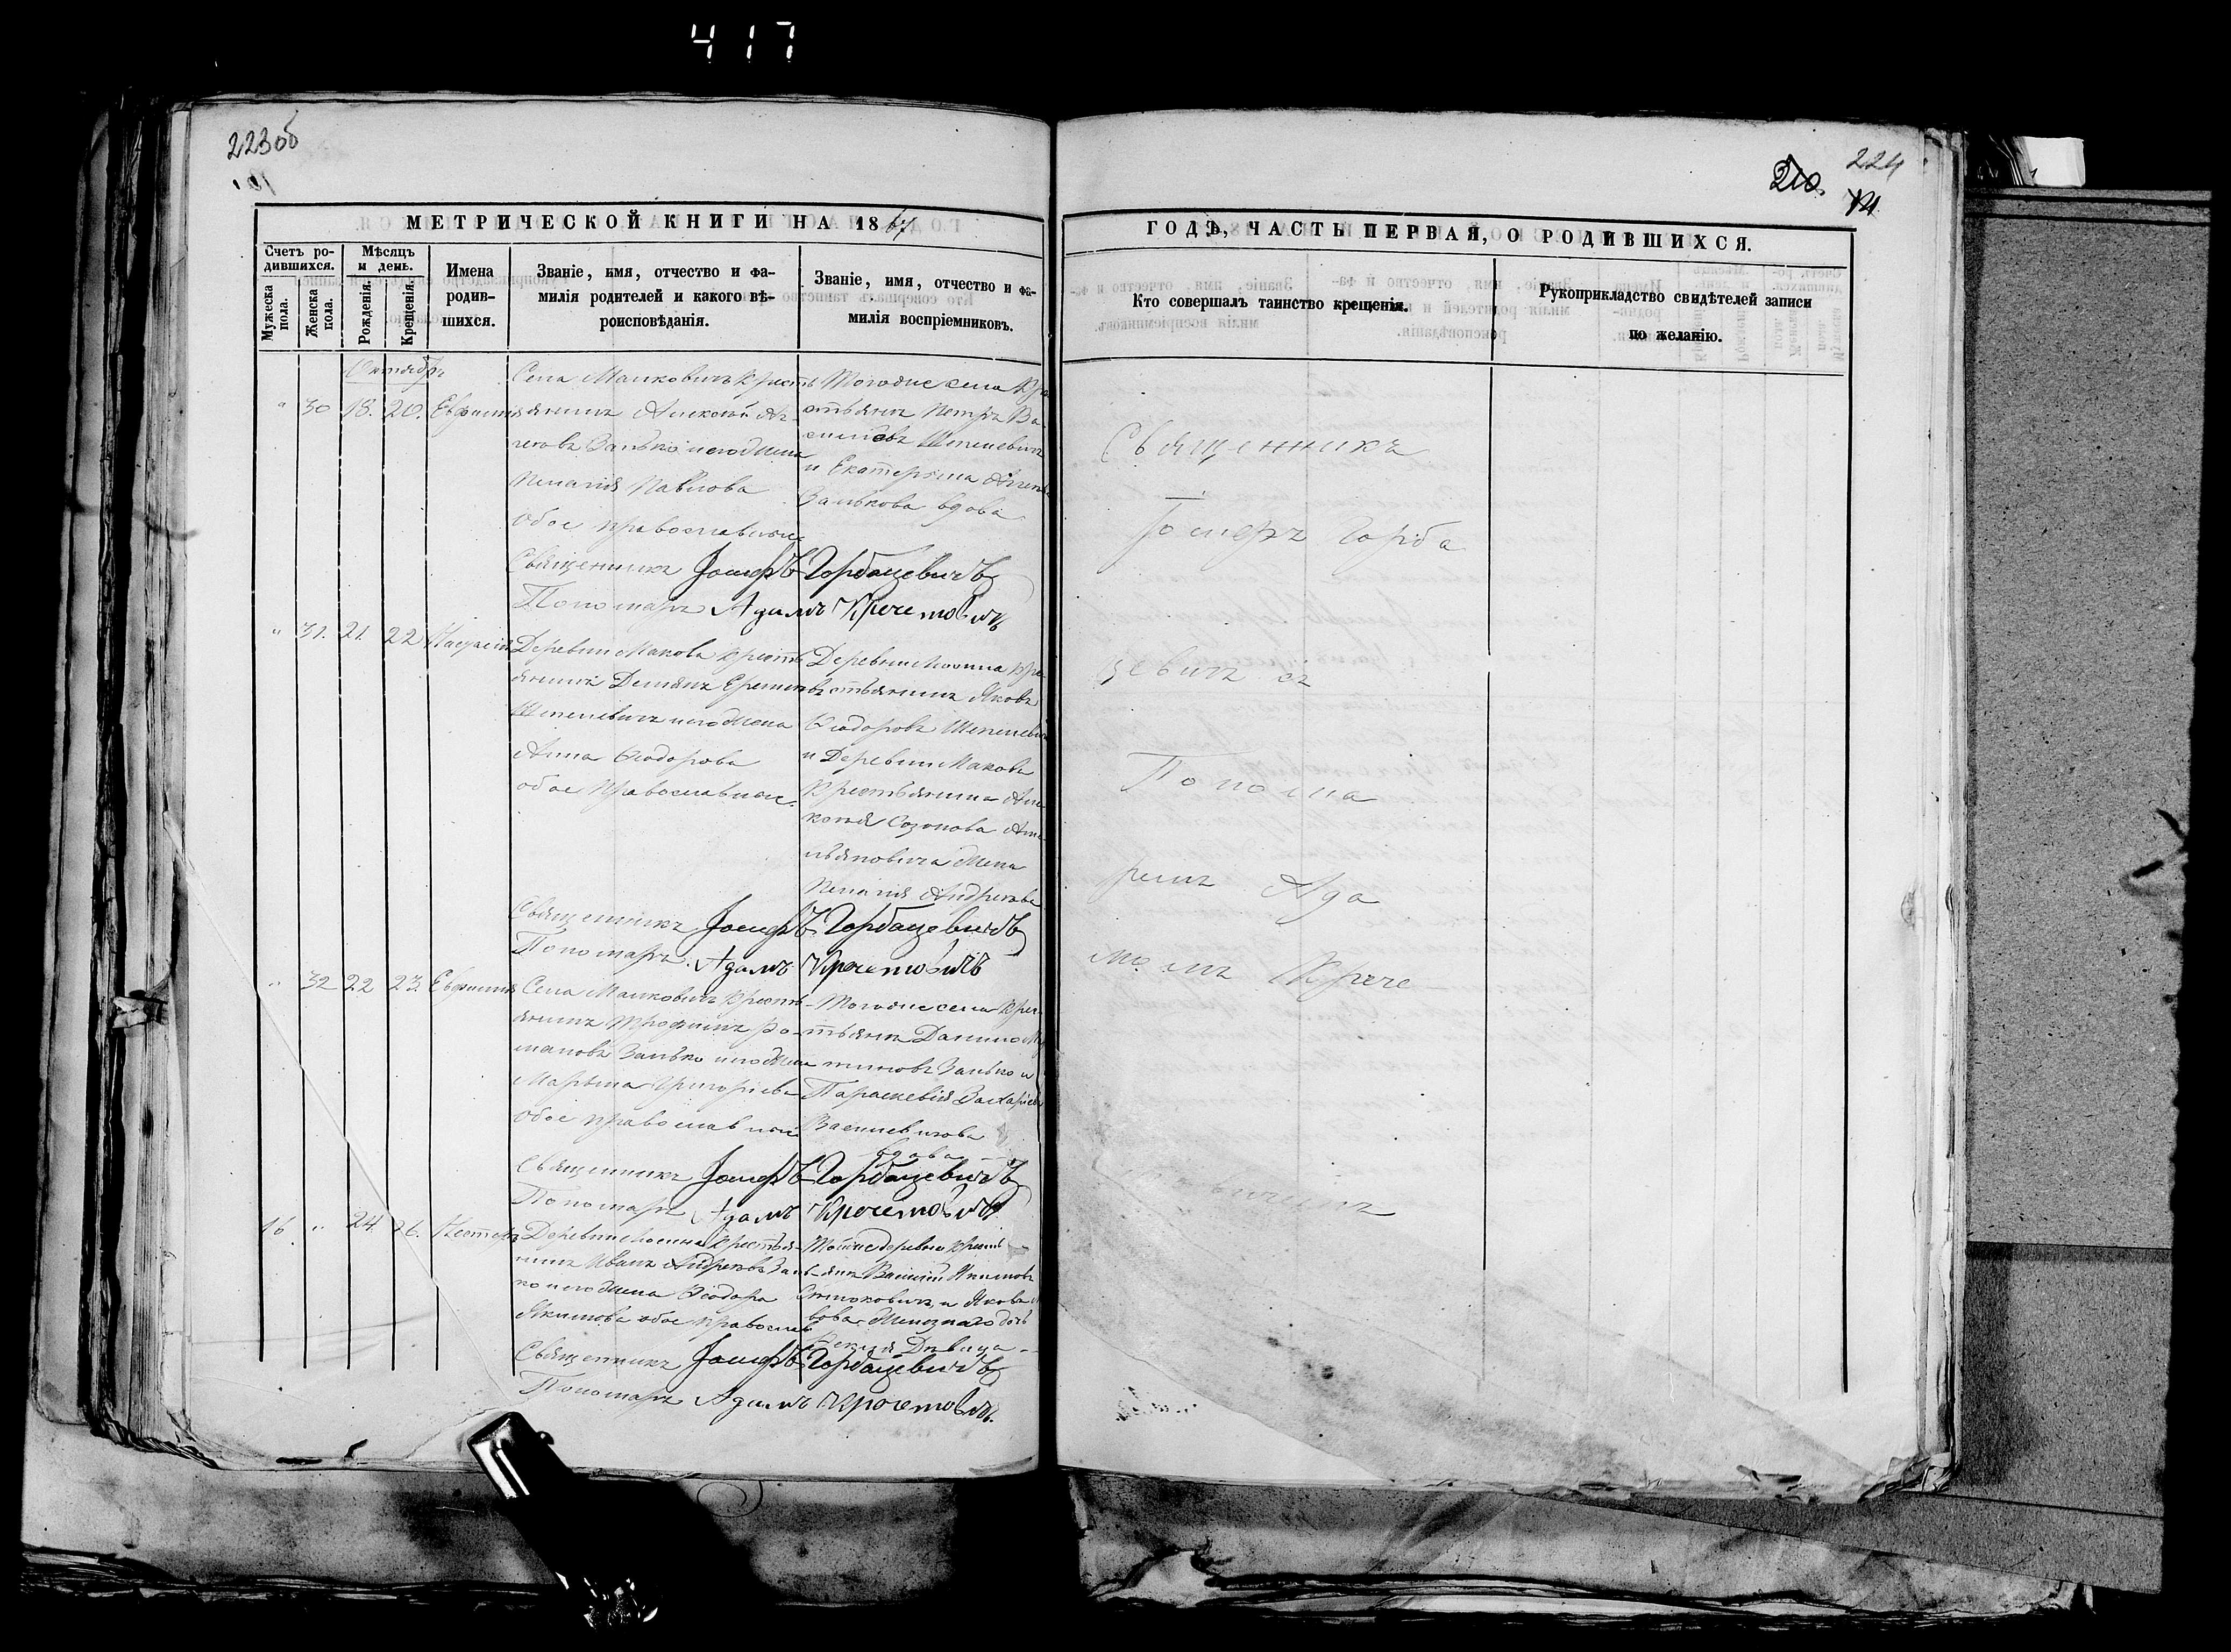 417
223об
МЕТРИЧЕСКОЙ КНИГИ НА 1867
Счетъ родившихся.
Мужеска пола.
Женска пола.
Мѣсяцъ и день.
Рожденія.
Крещенія.
Имена родив-
шихся.
Званіе, имя, отчество и фа-
милія родителей и какого вѣ-
роисповѣданія.
Званіе, имя, отчество и фа-
милія воспріемниковъ.
Октябрь
" 30 18. 20. Евфимія
Села Малковичъ крестъ
янинъ Алексѣй
Занько и его жена
Пелагія Павлова
обое православные
Тогоже села кре
стьянинъ Петръ Ва-
сильевъ Шепелевичъ
и Екатерина
Занькова вдова
Священникъ Іосифъ Горбацевичъ
Пономарь Адамъ Кречетовичъ
" 31. 21. 22
Деревни Макова крестъ
янинъ Демянъ
Шепелевичъ и его жена
Анна Ѳеодорова
обое православные.
Деревни Локина кре
стьянинъ Яковъ
Ѳеодоровъ Шепелевичъ
и Деревни Макова
крестьянина
Созонова
жена
Пелагія Андреева
Священникъ Іосифъ Горбацевичъ
Пономарь Адамъ Кречетовичъ
" 32 22 23. Евфимія
Села Малковичъ крестъ
янинъ Трофимъ Ро-
мановъ Занько и его жена
Марьяна Григоріева
обое православные
Тогоже села крес
тьянинъ Данило
Занько и
Параскевія Захаріева
Василевичова
вдова
Священникъ Іосифъ Горбацевичъ
Пономарь Адамъ Кречетовичъ
16. " 24. 26. Несторъ
Деревни Локина крестья-
нинъ Иванъ Андреевъ Зань-
ко и его жена Ѳеодора
Якимова обое православ
Тойже деревни крестъ
янинъ Василій Якимовъ
и Якова
дочь
Дѣвица
Священникъ Іосифъ Горбацевичъ
Пономарь Адамъ Кречетовичъ.
210.
224
ГОДЪ, ЧАСТЬ ПЕРВАЯ, О РОДИВШИХСЯ.
Кто совершалъ таинство крещенія.
Рукоприкладство свидѣтелей записи
по желанію.
Священникъ
Іосифъ Горба
цевичъ съ
Понома
ремъ Ада
момъ Крече
товичемъ